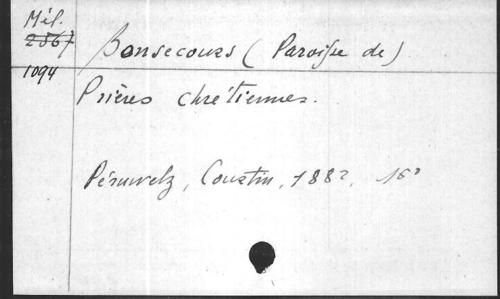 Mél.
2567
1094
Bonsecours (Paroisse de)
Prières chrétiennes.
Péruwelz, Coustin, 1882, 16°